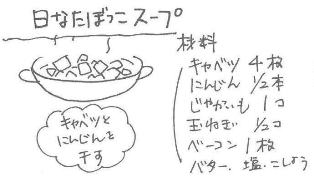 日なたぼっこスープ
材料
キャベツ 4枚
にんじん 1/2本
じゃがいも 1コ
玉ねぎ 1/2コ
ベーコン 1枚
バター、塩、こしょう
キャベツと
にんじんを
干す